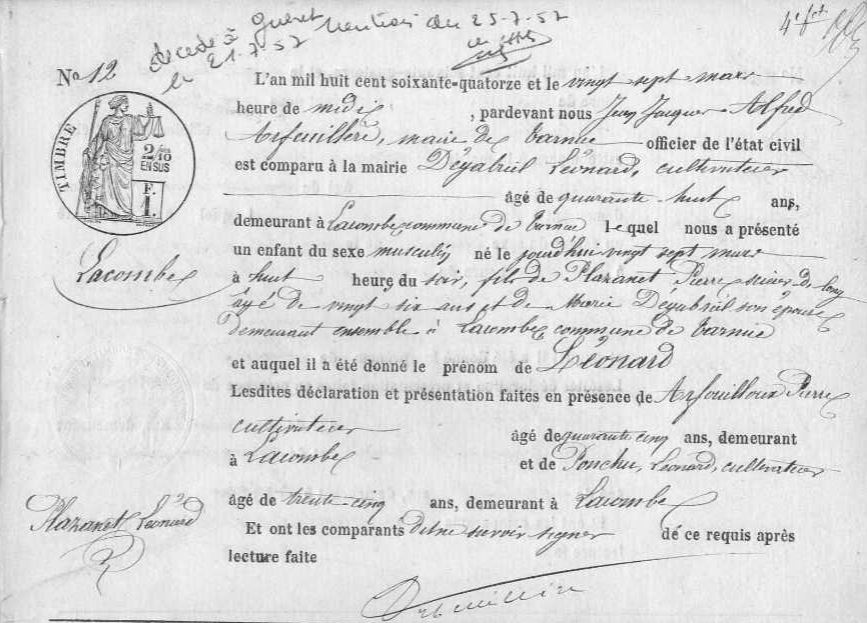 décédé à Guéret
le 21.7.57
Mention du 25-7-57
4e
No 12
L'an mil huit cent soixante-quatorze et le vingt sept mars
heure de midi, pardevant nous Jean Jacques Alfred
Arfeuillère, maire de Tarnac officier de l'état civil
est comparu à la mairie Déyabriel Léonard, cultivateur
âgé de quarante huit ans,
demeurant à Lacombe commune de Tarnac lequel nous a présenté
un enfant du sexe masculin né le jourd'hui vingt sept mars
à huit heure du soir, fils de Plazanet Pierre scieur de long
âgé de vingt six ans et de Marie Déyabriel son épouse
demeurant ensemble à Lacombe commune de Tarnac
et auquel il a été donné le prénom de Léonard
Lesdites déclaration et présentation faites en présence de Arfouilloux Pierre
cultivateur âgé de quarante cinq ans, demeurant
à Lacombe et de Ponchu, Léonard, cultivateur
âgé de trente-cinq ans, demeurant à Lacombe
Et ont les comparants dit ne savoir signer dé ce requis après
lecture faite
TIMBRE
2/10
EN SUS
F.
1.
Lacombe
Plazanet Léonard